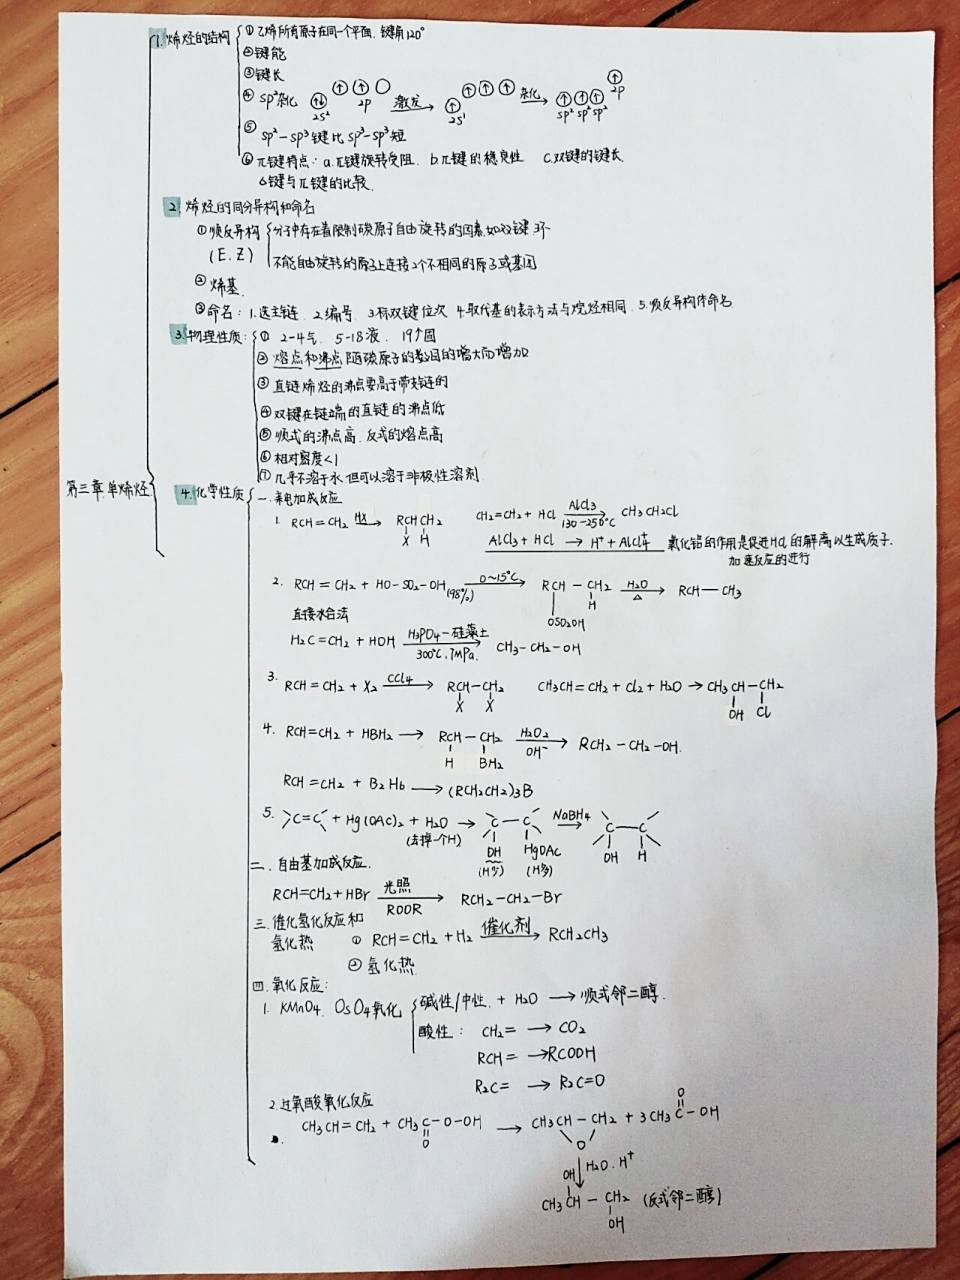 第三章.单烯烃
1.烯烃的结构
① 乙烯所有原子在同一个平面. 键角120°
②键能
③键长
④ sp²杂化 2s² 2p 激发→ 2s¹ 杂化→ sp² sp² sp² 2p
⑤ sp²-sp³键比sp³-sp³短
⑥ π键特点: a.π键旋转受阻. b.π键的稳良性 c.双键的键长
σ键与π键的比较.
2. 烯烃的同分异构和命名
① 顺反异构 (E.Z)
分子中存在着限制碳原子自由旋转的因素.如双键.环
不能自由旋转的原子上连接2个不相同的原子或基团
② 烯基.
③ 命名: 1.选主链. 2.编号. 3.标双键位次 4.取代基的表示方法与烷烃相同. 5.顺反异构体命名
3.物理性质:
① 2-4气. 5-18液. 19↑固
② 熔点和沸点随碳原子的数目的增大而增加
③ 直链烯烃的沸点要高于带支链的
④ 双键在链端的直链的沸点低
⑤ 顺式的沸点高.反式的熔点高
⑥ 相对密度<1
⑦ 几乎不溶于水.但可以溶于非极性溶剂
4.化学性质
一.亲电加成反应
1. RCH=CH2 HX→ RCHCH2 X H CH2=CH2 + HCl AlCl3 130-250°C→ CH3CH2Cl
AlCl3 + HCl → H⁺ + AlCl4⁻ 氯化铝的作用是促进HCl的解离以生成质子.
加速反应的进行
2. RCH=CH2 + HO-SO2-OH (98%) 0~15°C→ RCH-CH2 H OSO2OH H2O △→ RCH-CH3
直接水合法
H2C=CH2 + HOH H3PO4-硅藻土 300°C.7MPa.→ CH3-CH2-OH
3. RCH=CH2 + X2 CCl4→ RCH-CH2 X X CH3CH=CH2 + Cl2 + H2O → CH3CH-CH2 OH Cl
4. RCH=CH2 + HBH2 → RCH-CH2 H BH2 H2O2 OH⁻→ RCH2-CH2-OH.
RCH=CH2 + B2H6 → (RCH2CH2)3B
5. >C=C< + Hg(OAC)2 + H2O → C-C OH HgOAc NaBH4→ C-C OH H
(去掉一个H) (H少) (H多)
二.自由基加成反应.
RCH=CH2+HBr 光照 ROOR→ RCH2-CH2-Br
三.催化氢化反应和
氢化热
① RCH=CH2 + H2 催化剂→ RCH2CH3
② 氢化热.
四.氧化反应:
1. KMnO4. OsO4氧化
碱性/中性. + H2O → 顺式邻二醇.
酸性: CH2= → CO2
RCH= → RCOOH
R2C= → R2C=O
2.过氧酸氧化反应
CH3CH=CH2 + CH3C-O-OH O → CH3CH-CH2 O + 3CH3C-OH O
H2O.H⁺
OH CH3CH-CH2 OH (反式邻二醇)